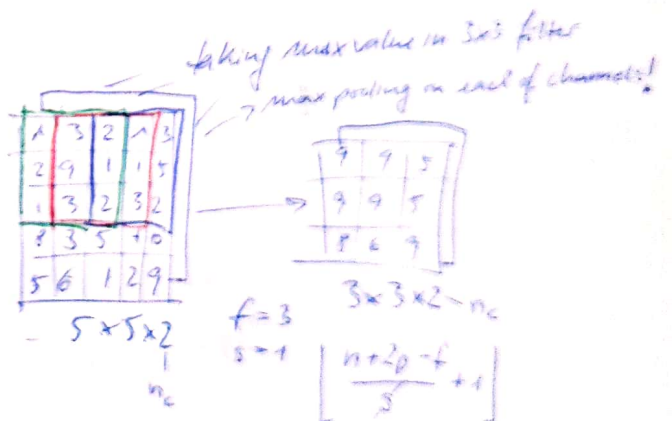 taking max value in 3x3 filter
max pooling on each of channels!
1 3 2 1 3
2 9 1 1 5
1 3 2 3 2
8 3 5 1 0
5 6 1 2 9
9 9 5
9 9 5
8 6 9
5 x 5 x 2
n_c
f = 3
s = 1
3 x 3 x 2 - n_c
⌊ (n+2p-f)/s + 1 ⌋